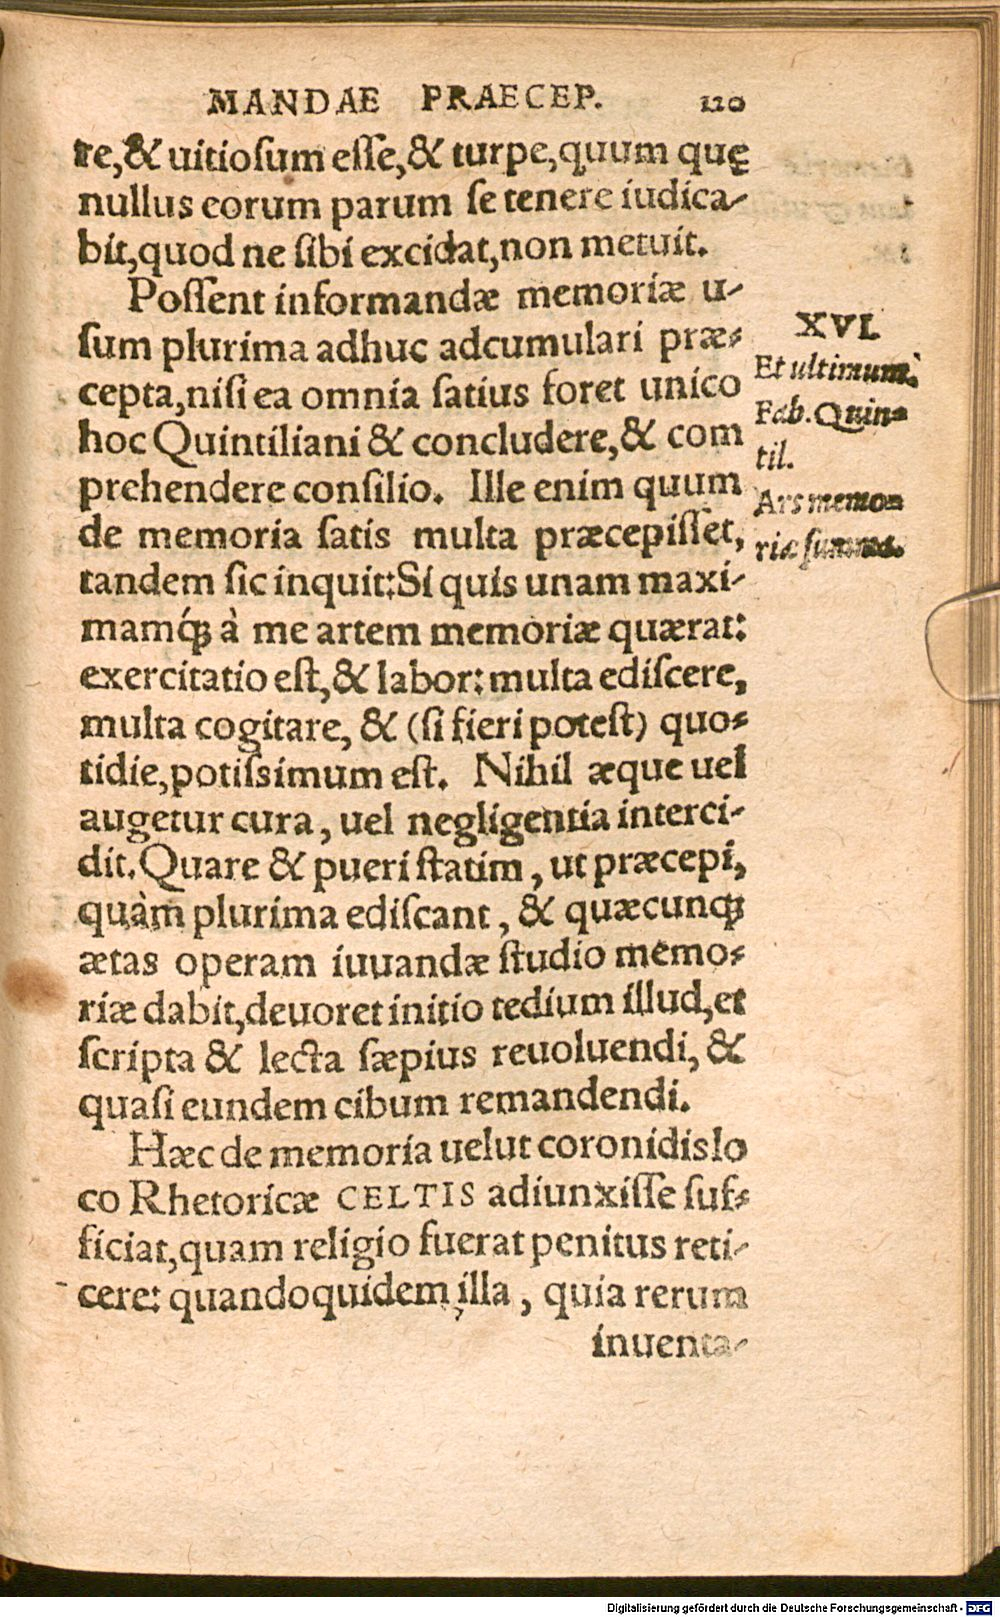 MANDAE PRAECEP. 120
re,& uitiosum esse,& turpe,quum quę
nullus eorum parum se tenere iudica-
bit,quod ne sibi excidat,non metuit.
Possent informandæ memoriæ u-
sum plurima adhuc adcumulari præ-
cepta,nisi ea omnia satius foret unico
hoc Quintiliani & concludere,& com
prehendere consilio. Ille enim quum
de memoria satis multa præcepisset,
tandem sic inquit:Si quis unam maxi-
mamq́; à me artem memoriæ quærat:
exercitatio est,& labor:multa ediscere,
multa cogitare, & (si fieri potest) quo-
tidie,potissimum est. Nihil æque uel
augetur cura, uel negligentia interci-
dit.Quare & pueri statim, ut præcepi,
quàm plurima ediscant, & quæcunq;
ætas operam iuuandæ studio memo-
riæ dabit,deuoret initio tedium illud,et
scripta & lecta sæpius reuoluendi, &
quasi eundem cibum remandendi.
Hæc de memoria uelut coronidis lo
co Rhetoricæ CELTIS adiunxisse suf-
ficiat,quam religio fuerat penitus reti-
cere: quandoquidem illa, quia rerum
inuenta-
XVI.
Et ultimum.
Fab. Quin-
til.
Ars memo-
riæ summa.
Digitalisierung gefördert durch die Deutsche Forschungsgemeinschaft - DFG